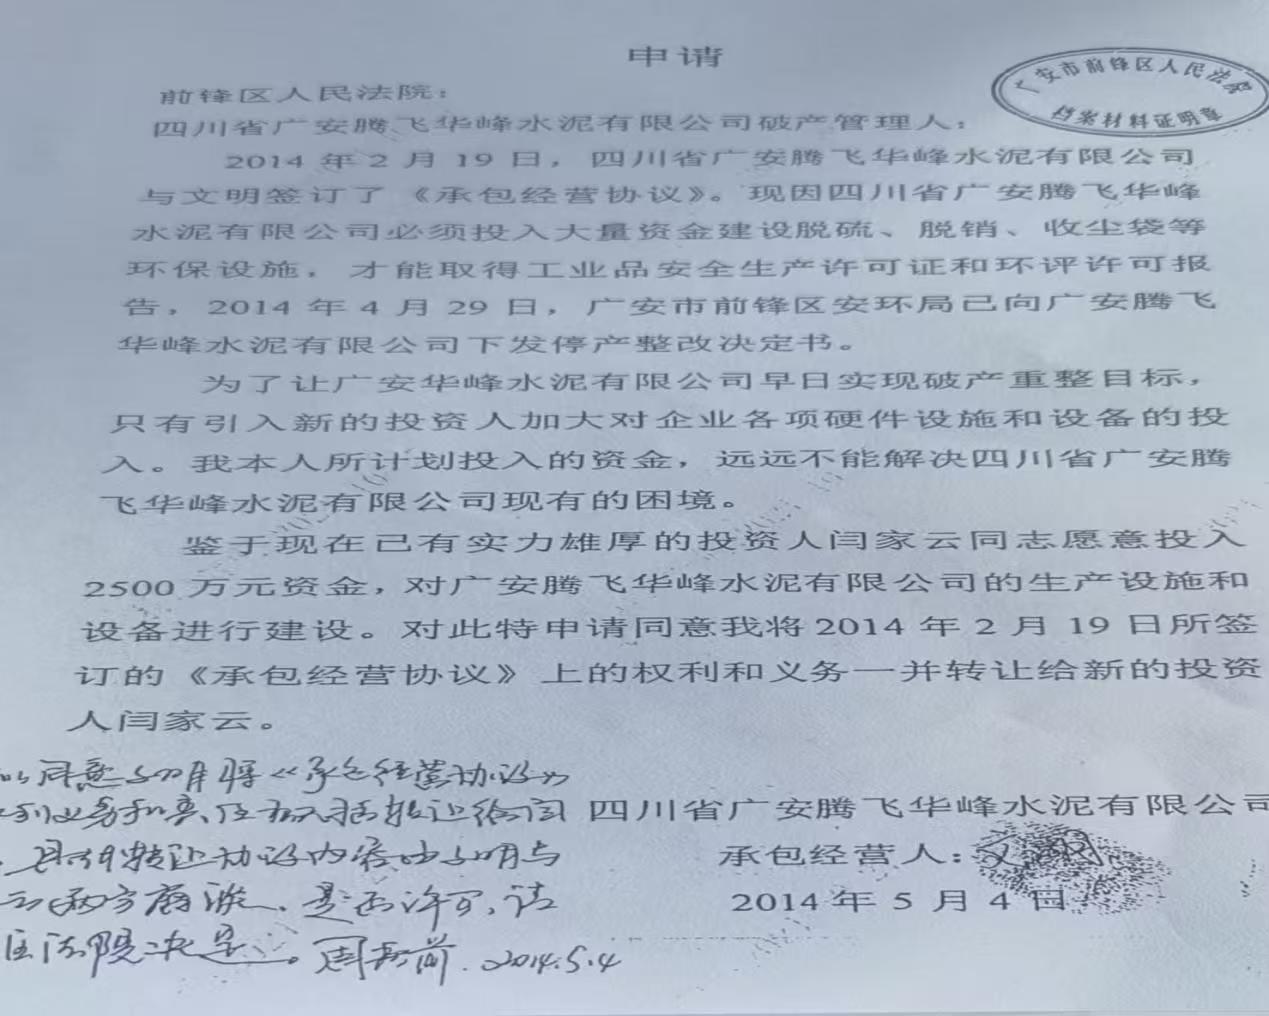 申请
广安市前锋区人民法院
档案材料证明章
前锋区人民法院：
四川省广安腾飞华峰水泥有限公司破产管理人：
2014年2月19日，四川省广安腾飞华峰水泥有限公司
与文明签订了《承包经营协议》。现因四川省广安腾飞华峰
水泥有限公司必须投入大量资金建设脱硫、脱销、收尘袋等
环保设施，才能取得工业品安全生产许可证和环评许可报
告，2014年4月29日，广安市前锋区安环局已向广安腾飞
华峰水泥有限公司下发停产整改决定书。
为了让广安华峰水泥有限公司早日实现破产重整目标，
只有引入新的投资人加大对企业各项硬件设施和设备的投
入。我本人所计划投入的资金，远远不能解决四川省广安腾
飞华峰水泥有限公司现有的困境。
鉴于现在已有实力雄厚的投资人闫家云同志愿意投入
2500万元资金，对广安腾飞华峰水泥有限公司的生产设施和
设备进行建设。对此特申请同意我将2014年2月19日所签
订的《承包经营协议》上的权利和义务一并转让给新的投资
人闫家云。
四川省广安腾飞华峰水泥有限公司
承包经营人：文明
2014年5月4日
同意文明将《承包经营协议》
转让给闫
转让协议内容由文明与
云两方商议，是否许可，请
区法院决定。周 2014.5.4